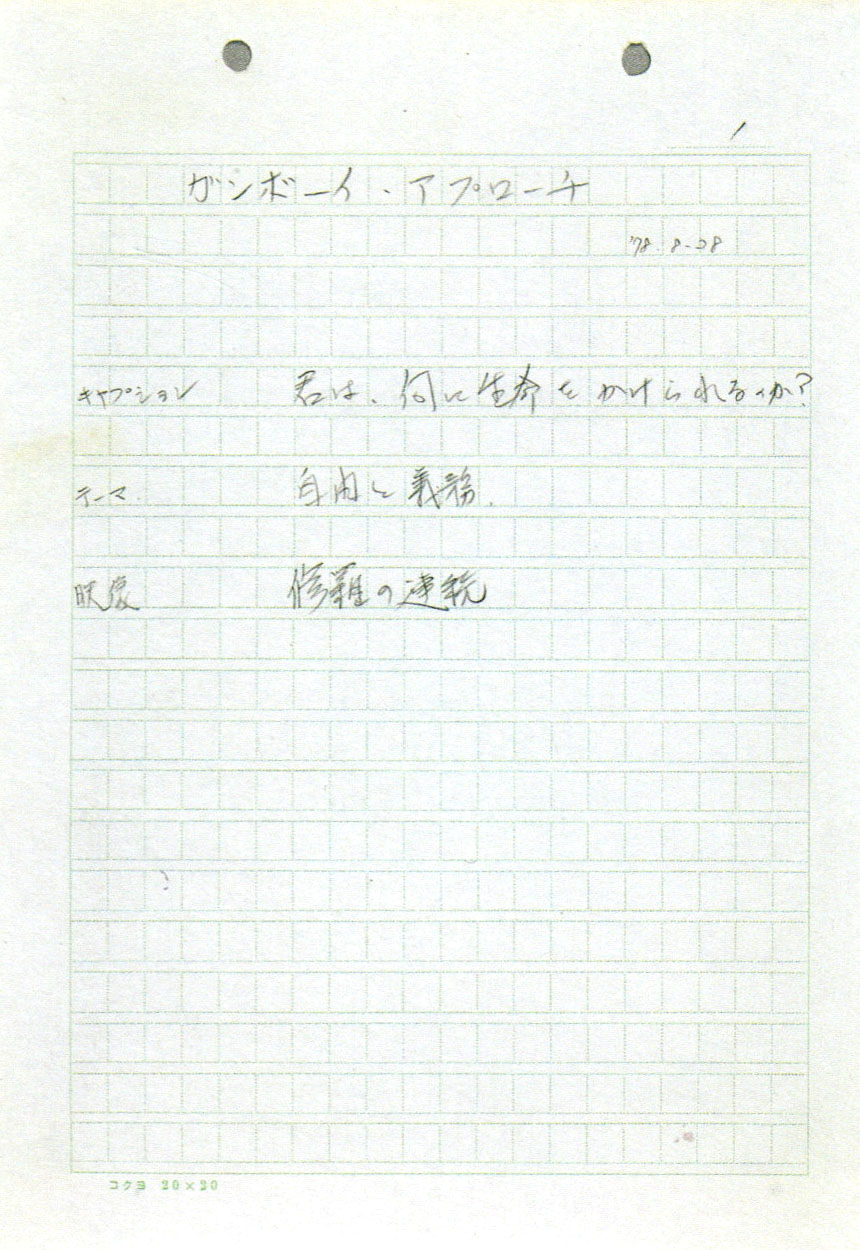 1
ガンボーイ・アプローチ
'78 8-28
キャプション 君は、何に生命をかけられるのか?
テーマ 自由と義務.
映像 修羅の連続
コクヨ 20×20